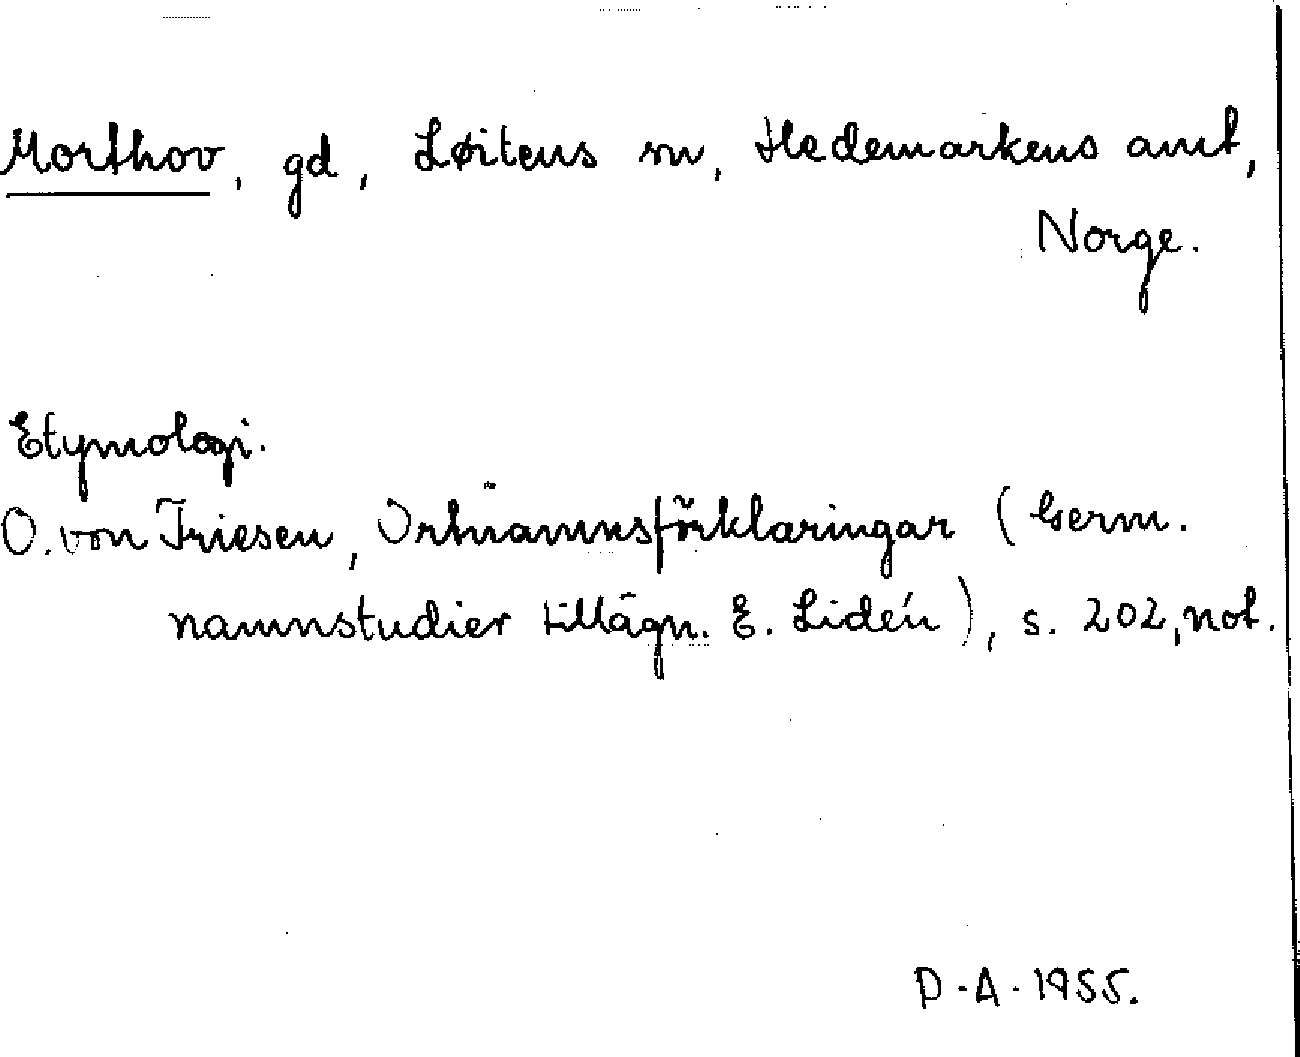 Morthov, gd, Løitens sn, Hedemarkens amt,
Norge.
Etymologi.
O. von Friesen, Ortnamnsförklaringar (Germ.
namnstudier tillägn. E. Lidén), s. 202, not.
D.A. 1955.